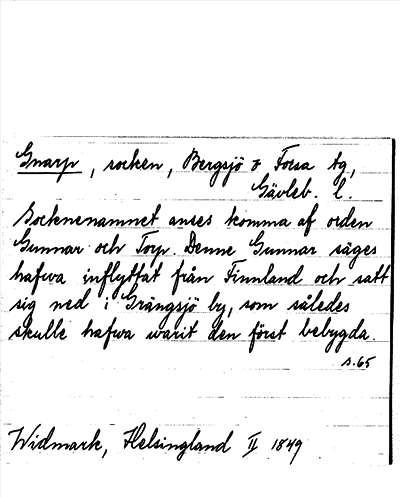 Gnarp, socken, Bergsjö o Forsa tg,
Gävleb. l.
Socknenamnet anses komma af orden
Gunnar och Torp. Denne Gunnar säges
hafwa inflyttat från Finnland och satt
sig ned i Grängsjö by, som således
skulle hafwa warit den först bebygda.
s. 65
Widmark, Helsingland II 1849